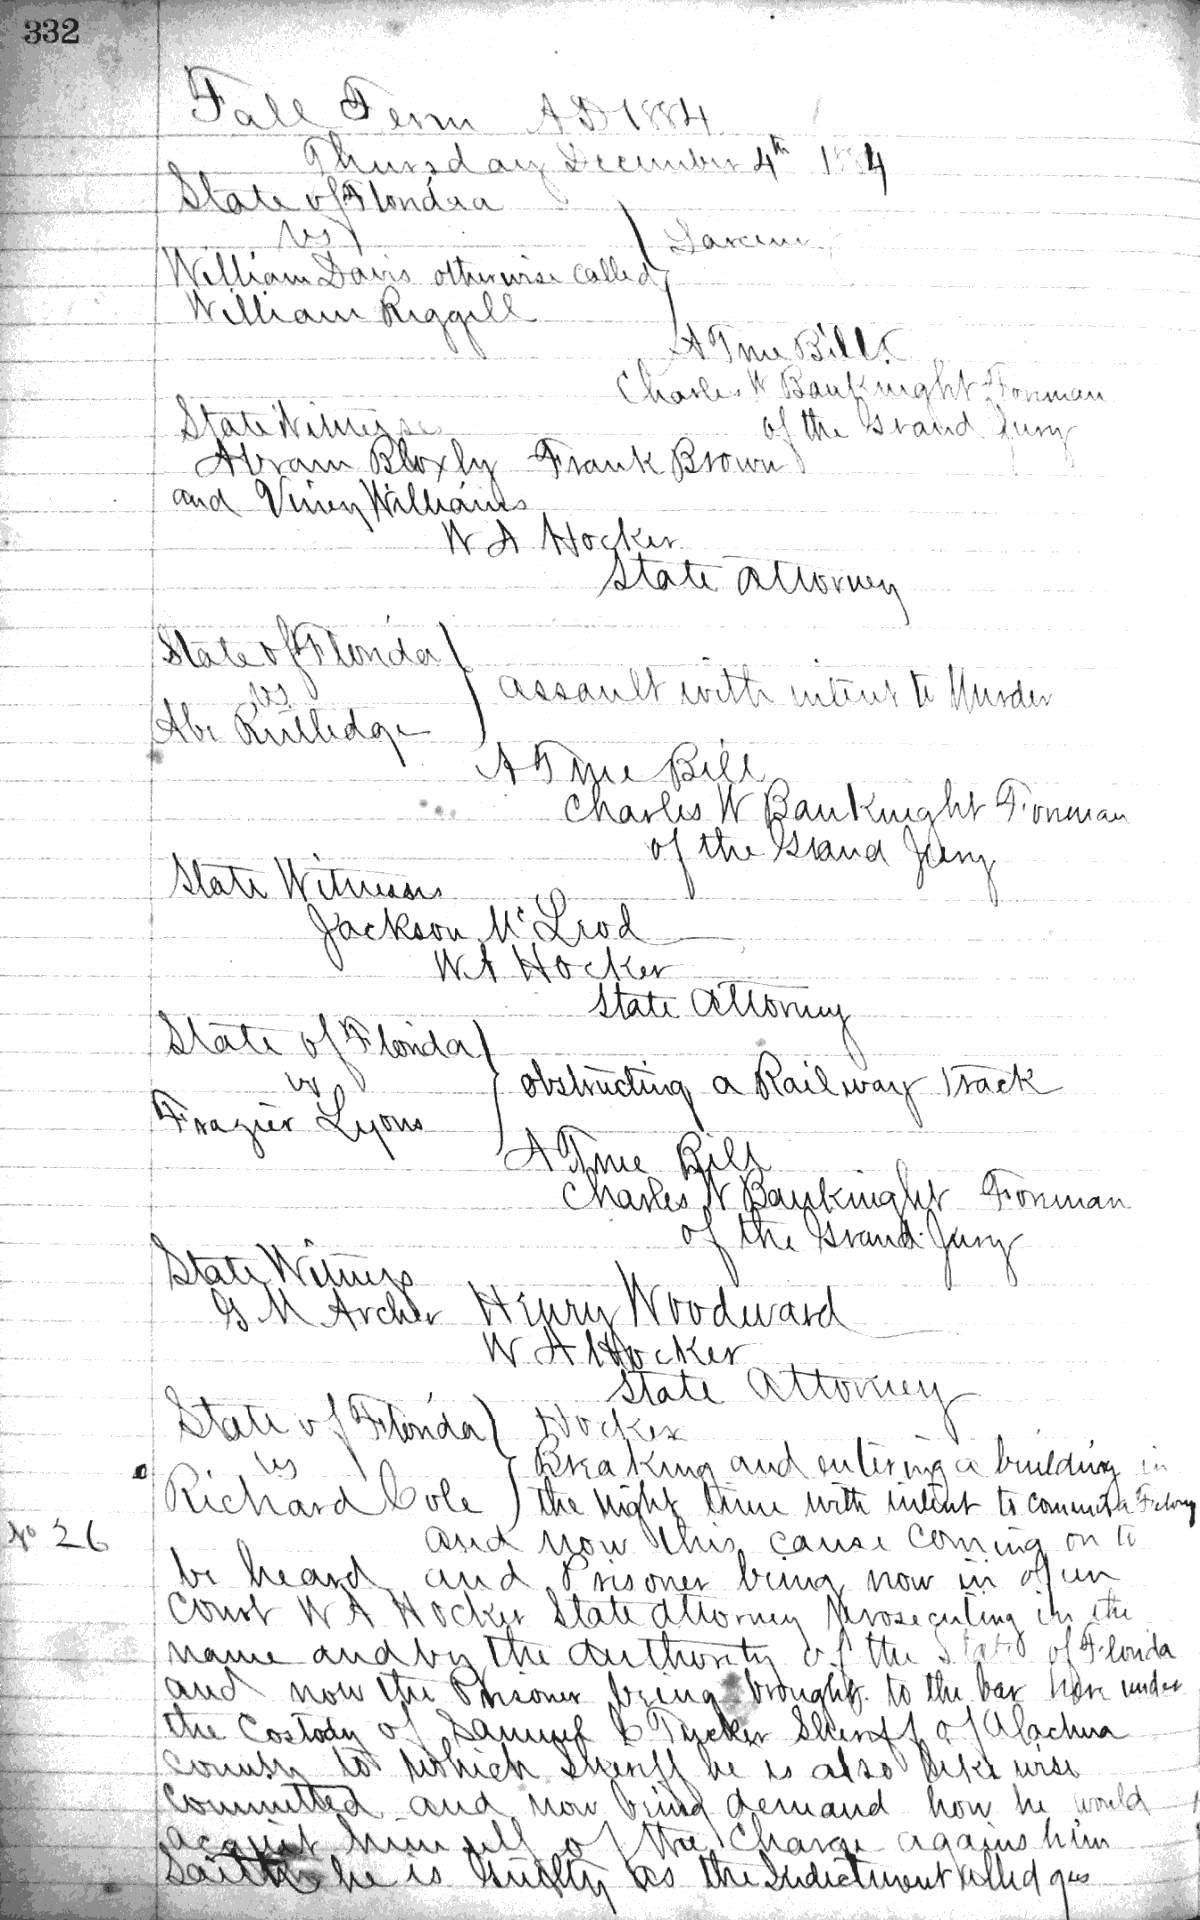 332
Fall Term AD 1884
Thursday December 4th 1884
State of Florida
vs
Larceny
William Davis otherwise called
William Riggell
A True Bill
Charles W Bauknight Forman
of the Grand Jury
State Witnesses
Abram Bloxly Frank Brown
and Viney Williams
W A Hocker
State Attorney
State of Florida
vs
assault with intent to Murder
Abe Rutledge
A True Bill
Charles W Bauknight Forman
of the Grand Jury
State Witnesses
Jackson McLeod
W A Hocker
State Attorney
State of Florida
vs
obstructing a Railway Track
Frazier Lyons
A True Bill
Charles W Bauknight Forman
of the Grand Jury
State Witness
G M Archer Henry Woodward
W A Hocker
State Attorney
State of Florida Hocker
vs
Breaking and entering a building in
Richard Cole the night time with intent to commit a Felony
No 26 and now this cause coming on to
be heard and Prisoner being now in open
Court W A Hocker State Attorney Prosecuting in the
name and by the Authority of the State of Florida
and now the Prisoner being brought to the bar here under
the Custody of Samuel C Tucker Sheriff of Alachua
County to which Sheriff he is also likewise
committed and now being demand how he would
acquit himself of the charge against him
Saith he is Guilty as the Indictment alledges